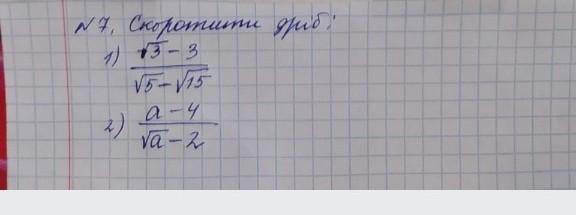 №7. Скоротити дріб:
1) (√3 - 3)/(√5 - √15)
2) (a - 4)/(√a - 2)